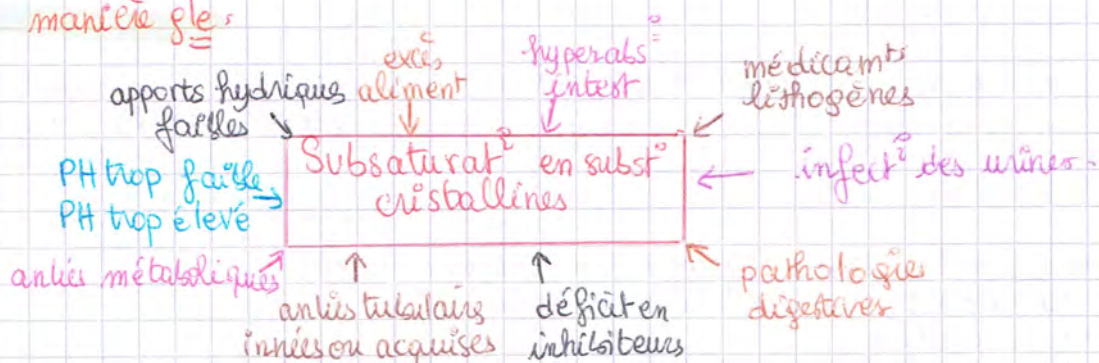 manière gle :
apports hydriques
faibles
excès
aliment
hyperabs°
intest
médicamts
lithogènes
PH trop faible
PH trop élevé
Subsaturat° en subst°
cristallines
infect° des urines.
anlies métaboliques
anlies tubulaires
innées ou acquises
déficit en
inhibiteurs
pathologies
digestives